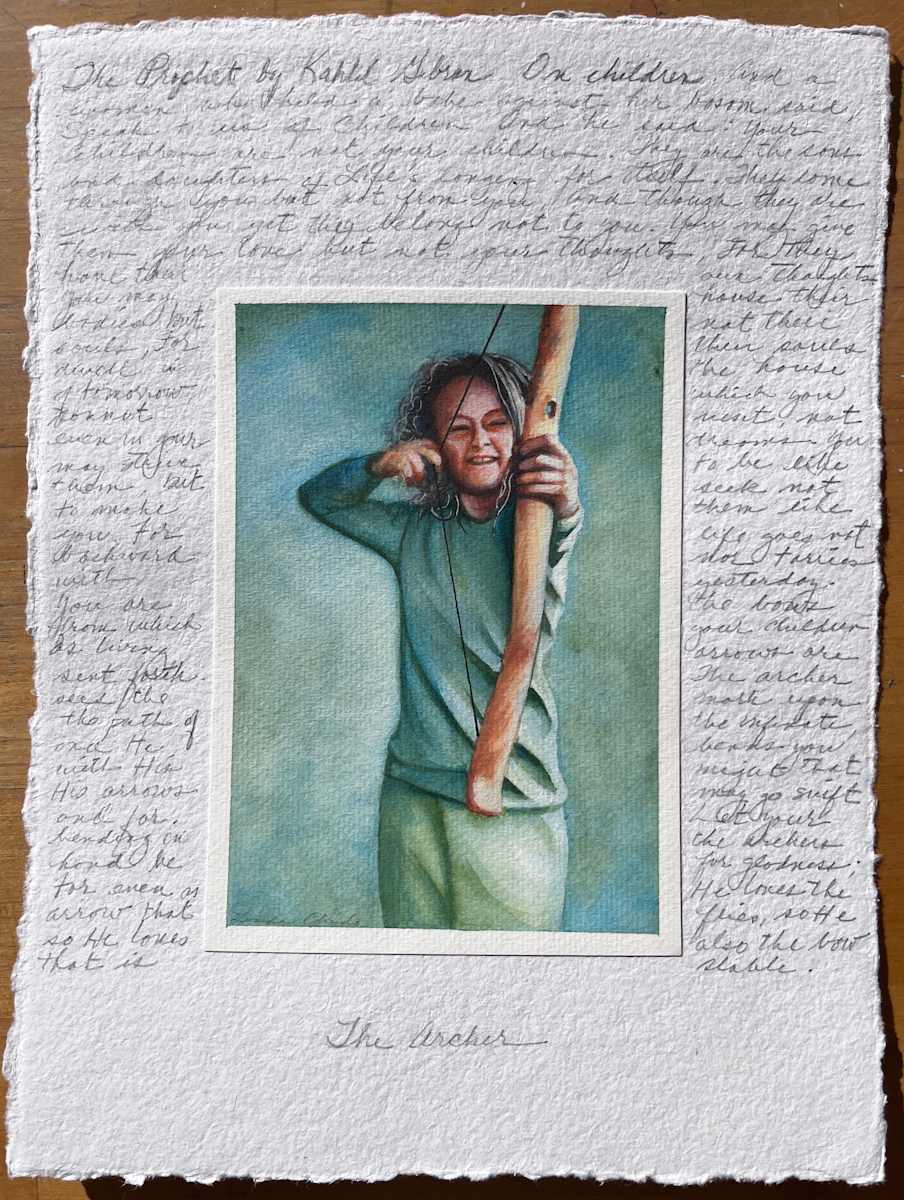 The Prophet by Kahlil Gibran On children. And a
women who held a babe against her bosom said,
Speak to us of Children And he said: Your
children are not your children. They are the sons
and daughters of Life's longing for itself. They come
through you but not from you, and though they are
with you yet they belong not to you. You may give
them your love but not your thoughts, For they
have their own thoughts
You may house their
bodies but not their
souls, For their souls
dwell in the house
of tomorrow, which you
cannot visit, not
even in your dreams You
may strive to be like
them, but seek not
to make them like
you For life goes not
backward nor tarries
with yesterday.
You are the bows
from which your children
as living arrows are
sent forth. The archer
sees the mark upon
the path of the infinite
and He bends you
with His might that
His arrows may go swift
and far. Let your
bending in the archers
hand be for gladness;
For even as He loves the
arrow that flies, so He
so He loves also the bow
that is stable.
The Archer